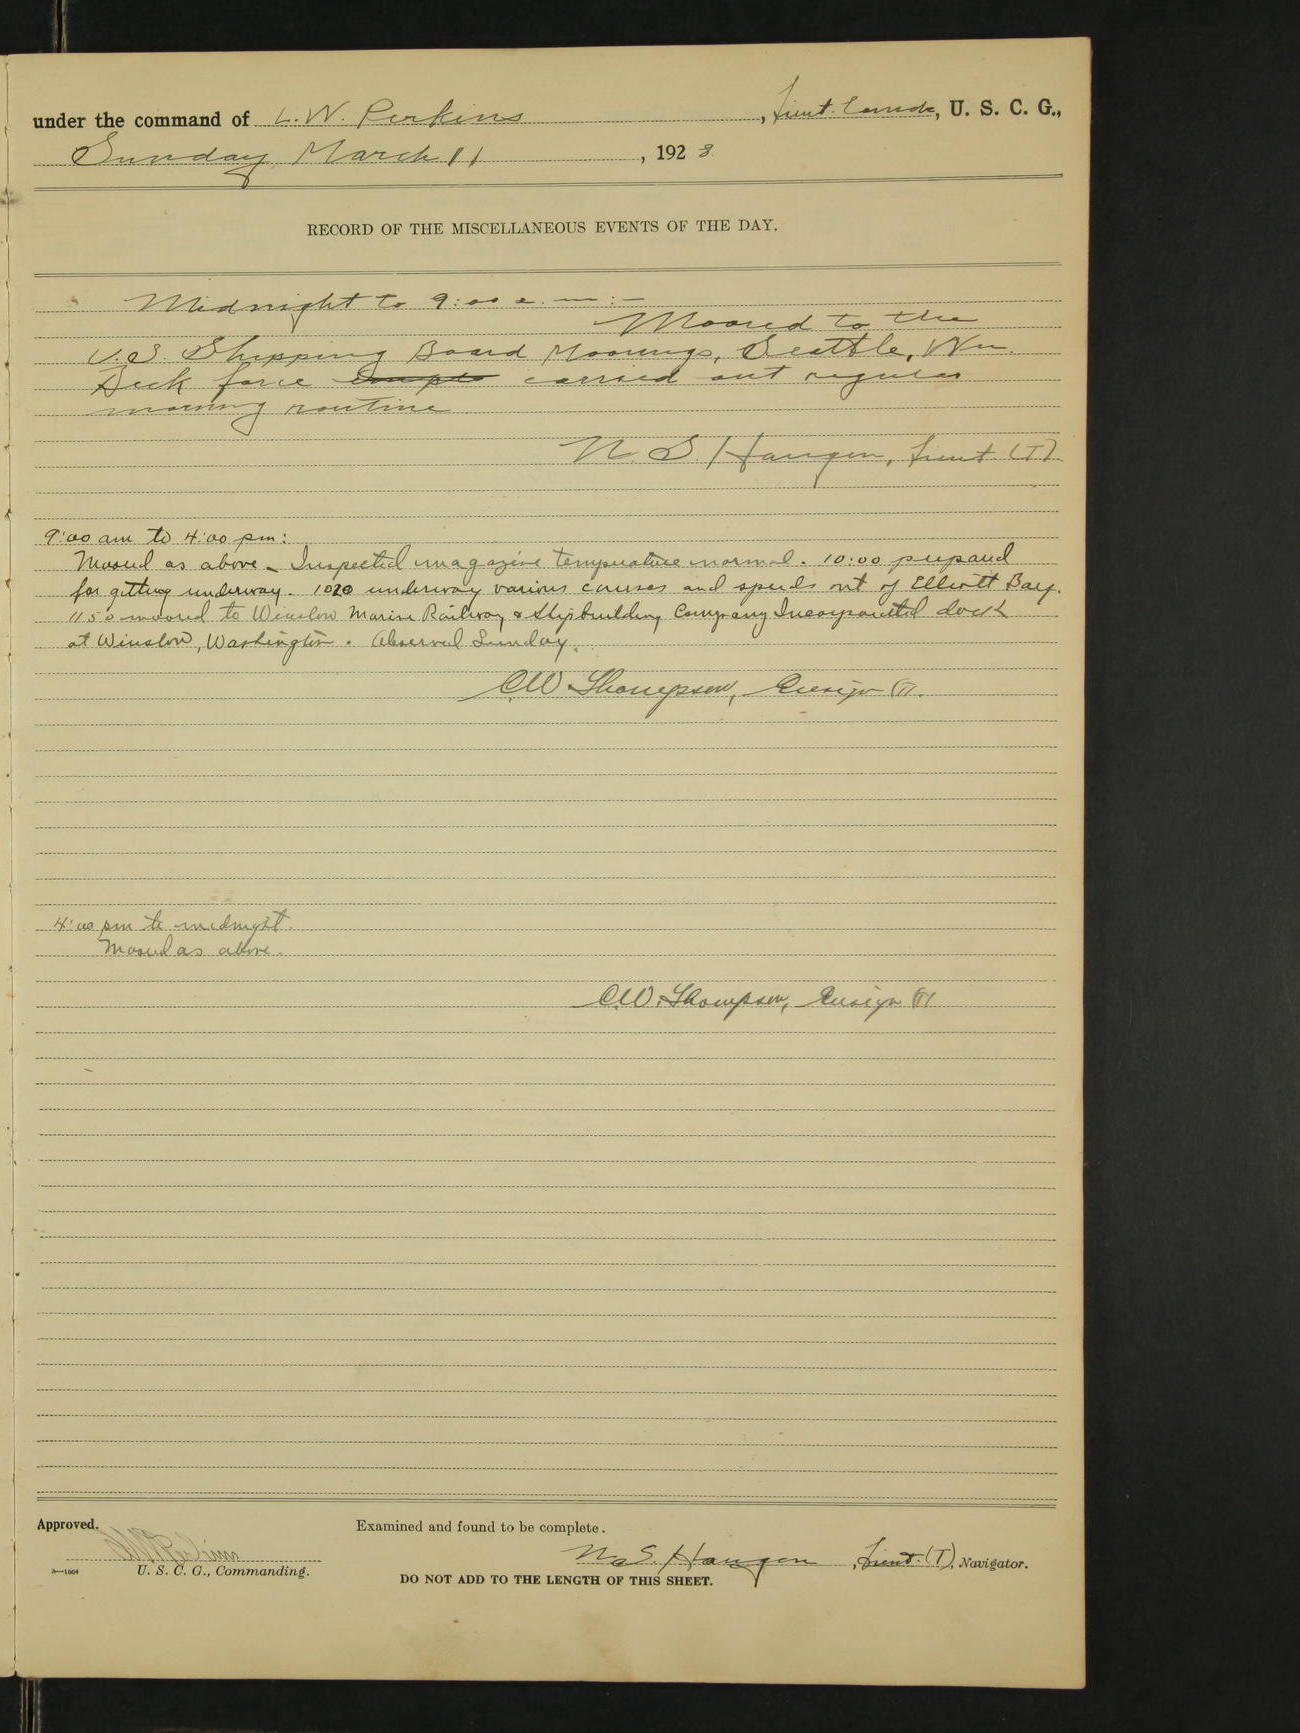 under the command of L. W. Perkins, Lieut. Comdr, U. S. C. G.,
Sunday March 11, 1928
RECORD OF THE MISCELLANEOUS EVENTS OF THE DAY.
Midnight to 9:00 a. m.:-
Moored to the
U.S. Shipping Board Moorings, Seattle, Wn.
Deck force carried out regular
morning routine
N. S. Haugen, Lieut (T)
9:00 am to 4:00 pm:
Moored as above - Inspected magazine temperature normal. 10:00 prepared
for getting underway. 1020 underway various courses and speeds out of Elliott Bay.
1150 moored to Winslow Marine Railway & Shipbuilding Company Incorporated dock
at Winslow, Washington. Observed Sunday.
C.W. Thompson, Ensign (T).
4:00 pm to midnight.
Moored as above.
C.W. Thompson, Ensign (T)
Approved.
Examined and found to be complete.
N. S. Haugen, Lieut. (T), Navigator.
U. S. C. G., Commanding.
DO NOT ADD TO THE LENGTH OF THIS SHEET.